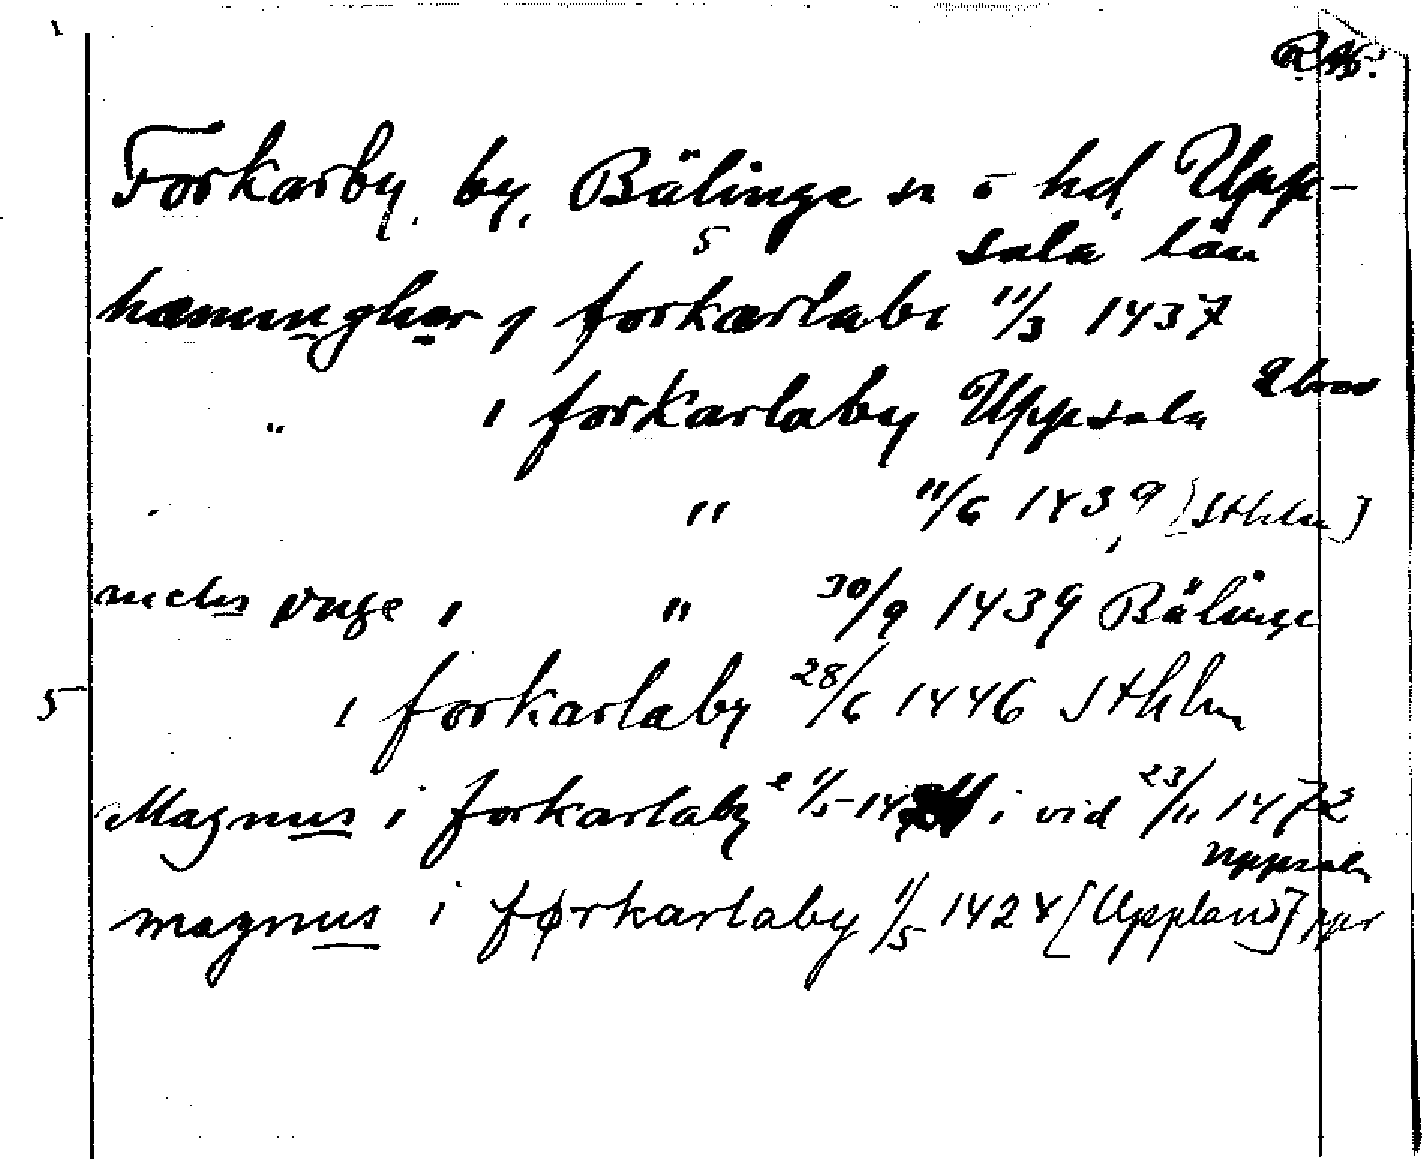 RAp.
Forkarby, by, Bälinge sn o hd, Upp-
sala län
5
hæmingher j forkærlabi 11/3 1437
" i forkarlaby Uppsala 2 brev
" 11/6 1439 [Sthlm]
niclis vnge i " 30/9 1439 Bälinge
5 i forkarlaby 28/6 1446 Sthlm
Magnus i forkarlaby 1/5 i vid 23/11 1472
Uppsala
magnus i førkarlaby 1/5 1424 [Uppland] ppr